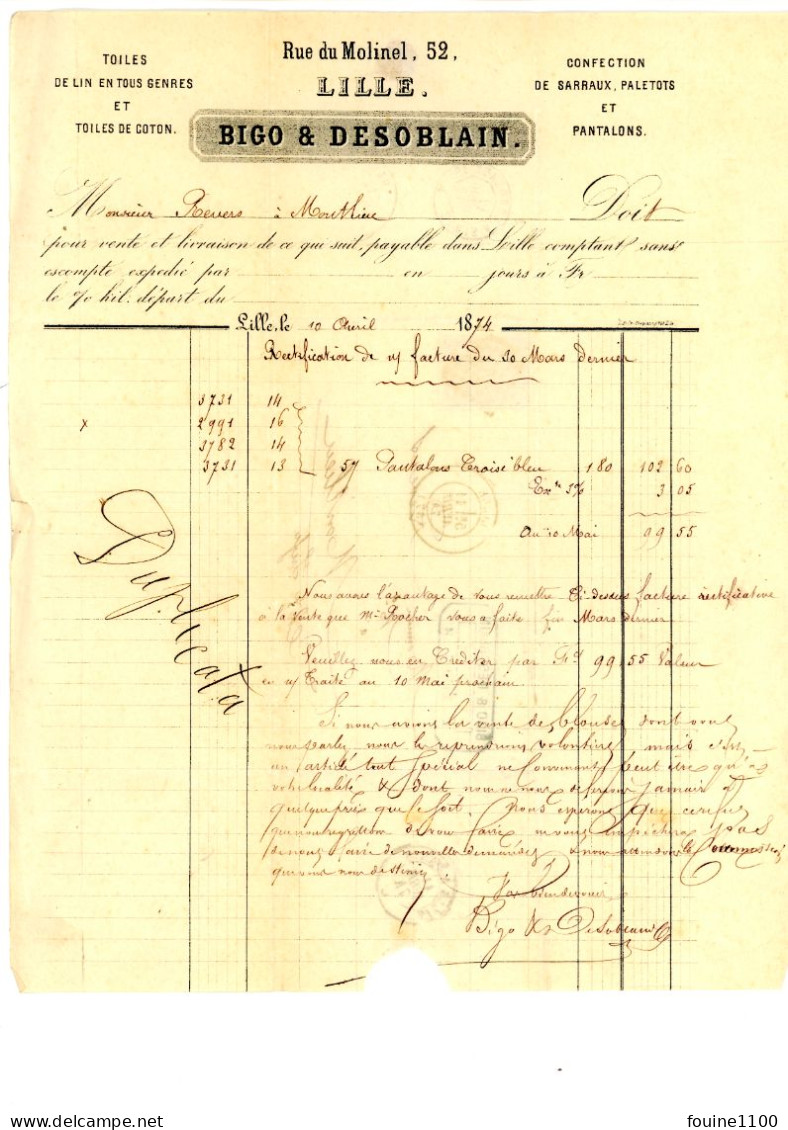 Rue du Molinel, 52,
LILLE.
BIGO & DESOBLAIN.
TOILES
DE LIN EN TOUS GENRES
ET
TOILES DE COTON.
CONFECTION
DE SARRAUX, PALETOTS
ET
PANTALONS.
Monsieur Revers à Doit
pour vente et livraison de ce que suit, payable dans Lille comptant sans
escompte expedié par en jours à Fr
le % kil. départ du
Lille, le 10 Avril 1874
Rectification de n/ facture du 30 Mars dernier
3731 14
x 2991 16
3782 14
3731 13 57 Pantalons Croisé bleu 180 102 60
Esc.te 3% 3 05
Au 10 Mai 99 55
Duplicata
Nous avons l'avantage de vous remettre Ci-dessus facture rectificative
à la Vente que Mr Rocher vous a faite fin Mars dernier
Veuillez nous en Créditer par Fs 99.55 Valeur
en n/ Traite au 10 Mai prochain.
Si nous avions la vente de blouses dont vous
nous parlez nous les reprendrions volontiers mais c'est
un article tout spécial ne convenant peut être qu'à
votre localité & dont nous ne nous déferions jamais à
quelque prix que ce soit. Nous espérons que
que nous regrettons de vous faire ne vous empêchera pas
de nous faire de nouvelles demandes & nous attendons les
que vous nous destinez.
Bigo & Desoblain
delcampe.net
fouine1100